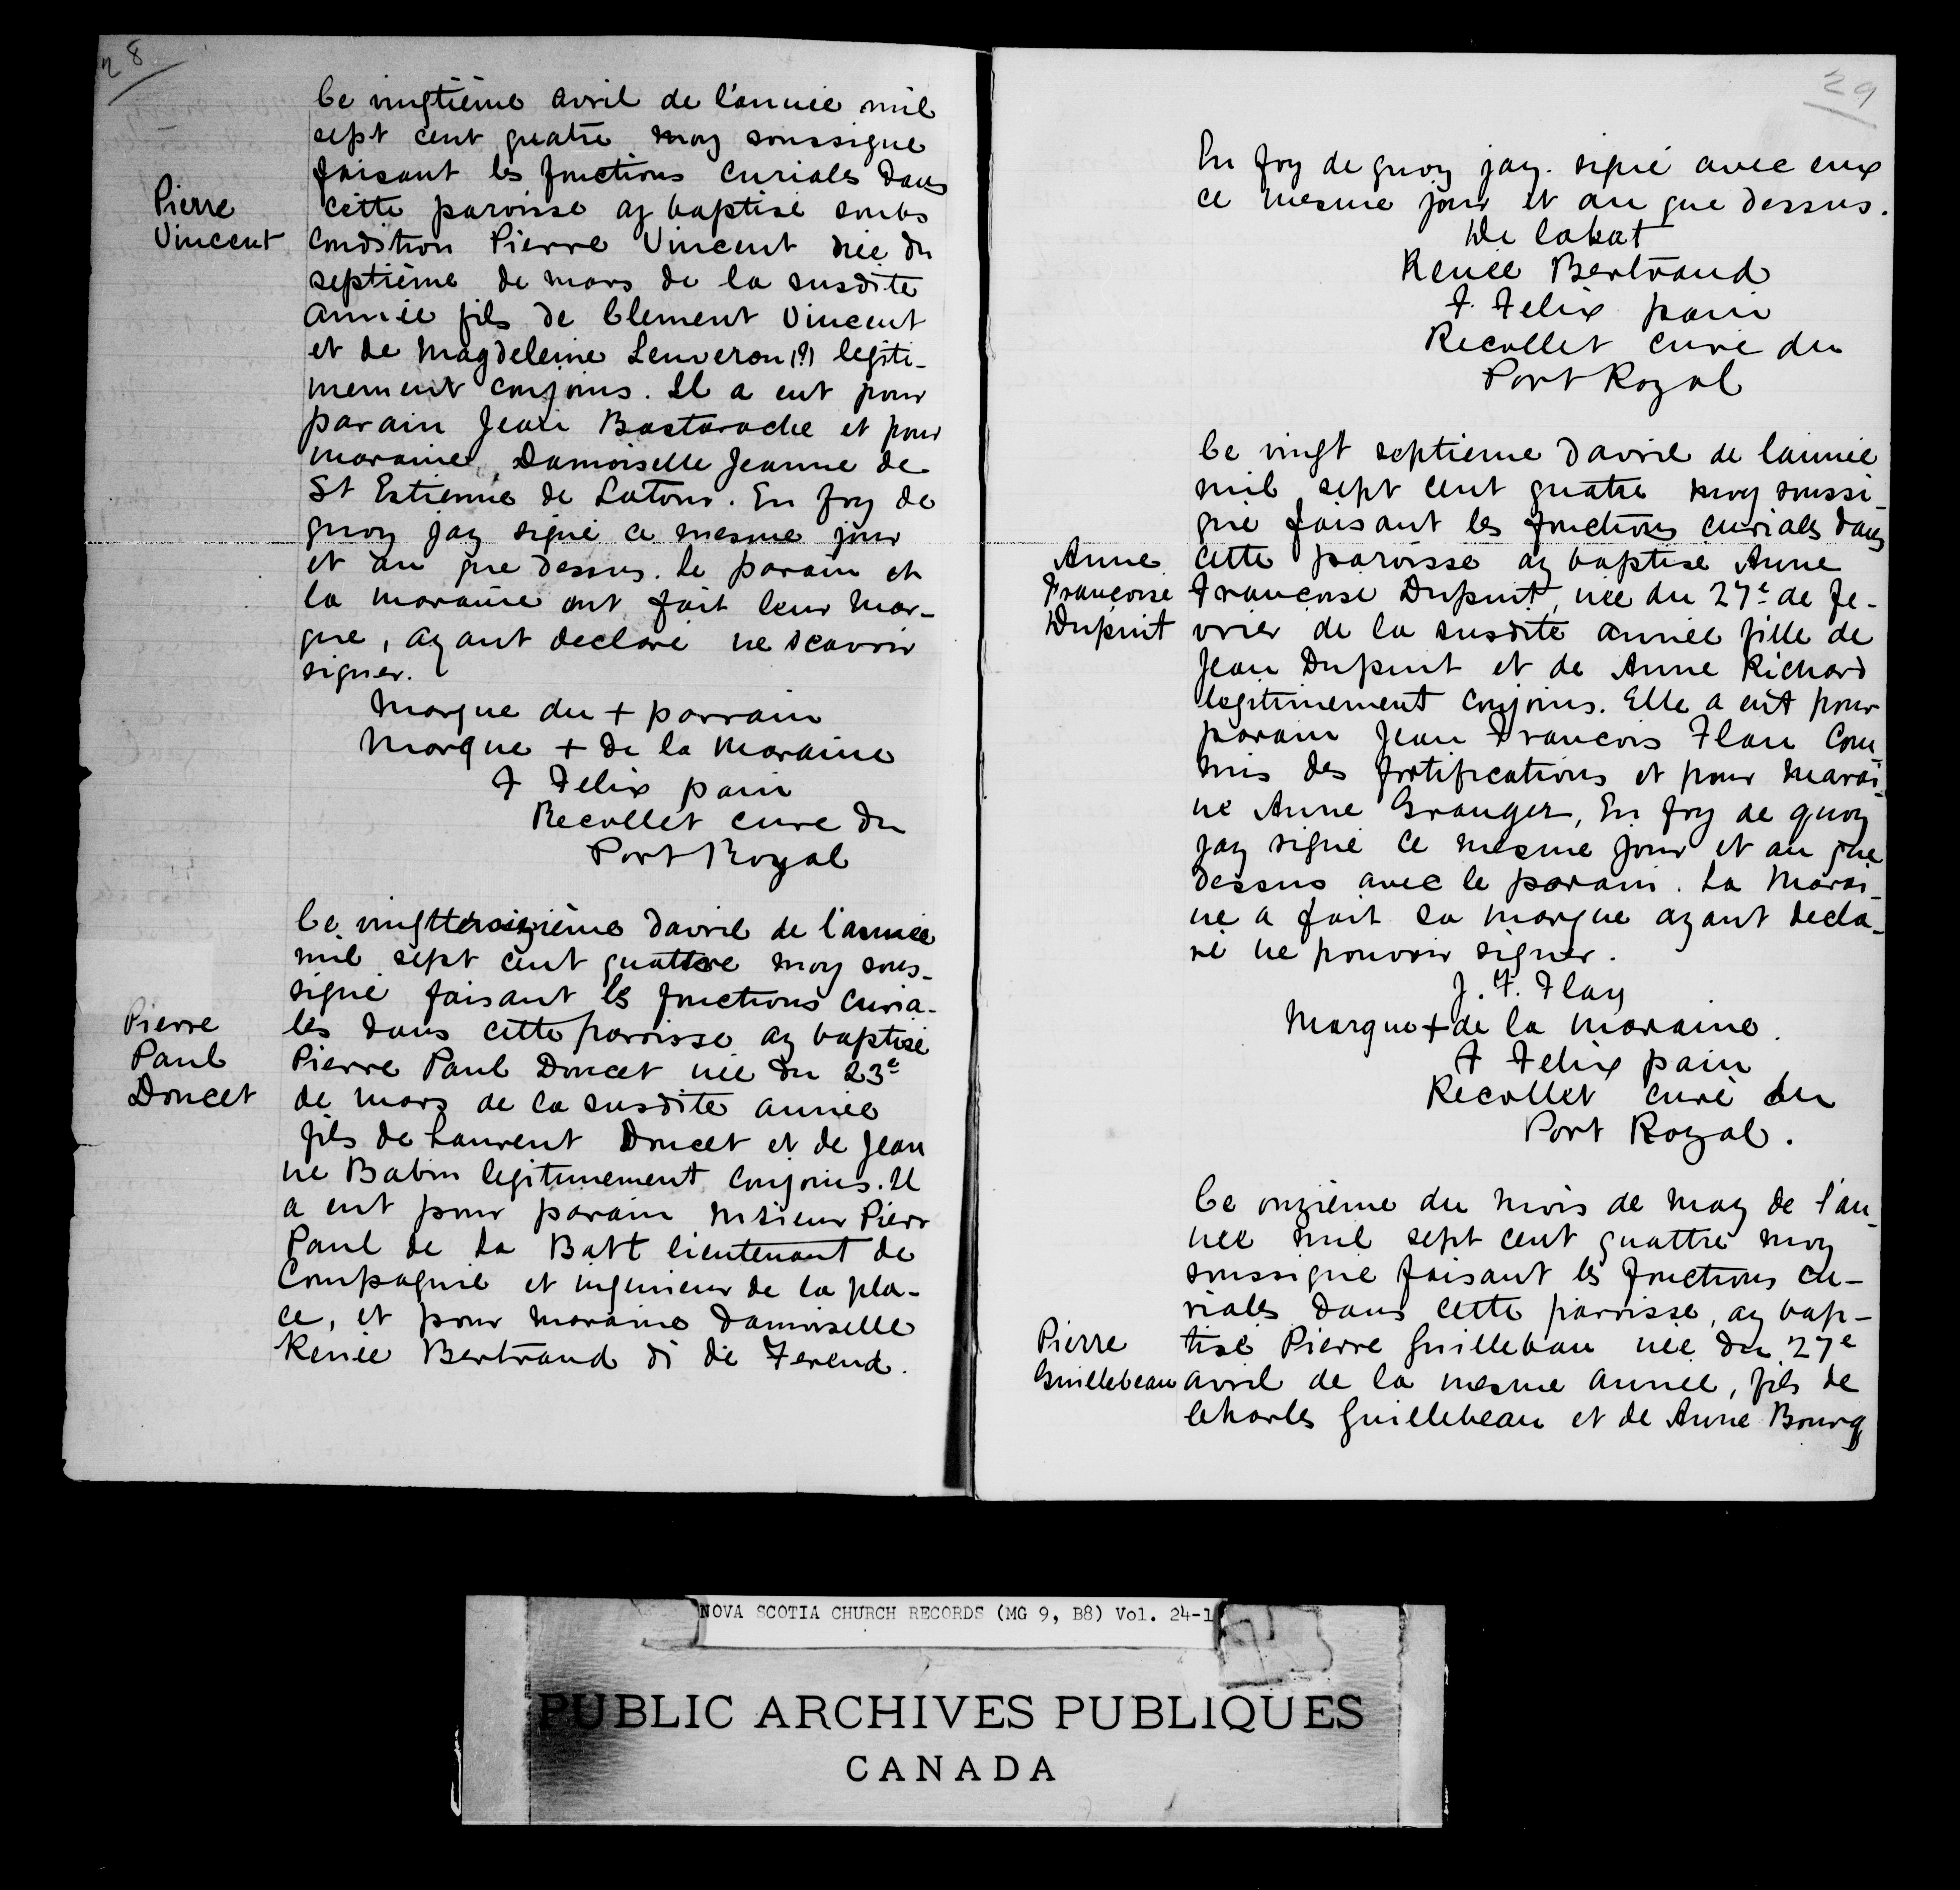 28
Ce vingtième avril de l'année mil
sept cent quatre moy soussigne
faisant les fonctions curiales dans
Pierre
Vincent
cette paroisse ay baptisé soubs
condition Pierre Vincent née du
septième de mars de la susdite
année fils de Clement Vincent
et de Magdeleine Lenveron (?) legiti-
mement conjoins. Il a eut pour
parain Jean Bastarache et pour
maraine Damoiselle Jeanne de
St Estienne de Latour. En foy de
quoy jay signé ce mesme jour
et an que dessus. Le parain et
la maraine ont fait leur mar-
que, ayant declaré ne scavoir
signer.
Marque du + parrain
Marque + de la Maraine
F Felix pain
Recollet cure du
Port Royal
Ce vingttroizième davril de l'année
mil sept cent quattre moy sous-
signé faisant les fonctions curia-
Pierre
Paul
Doucet
les dans cette paroisse ay baptisé
Pierre Paul Doucet née du 23e
de mars de la susdite année
fils de Laurent Doucet et de Jean
ne Babin legitimement conjoins. Il
a eut pour parain Msieur Pierr
Paul de La Batt lieutenant de
Compagnie et ingenieur de la pla-
ce, et pour maraine damoiselle
Renée Bertrand di de Ferend.
29
En foy de quoy jay. signé avec eux
ce mesme jour et an que dessus.
De labat
Renée Bertrand
F. Felix pain
Recollet curé du
Port Royal
Ce vingt septieme davril de lannée
mil sept cent quatre moy soussi-
gné faisant les fonctions curiales dans
Anne
Francoise
Dupuit
cette paroisse ay baptisé Anne
Francoise Dupuit, née du 27e de fe-
vrier de la susdite année fille de
Jean Dupuit et de Anne Richard
legitimement conjoins. Elle a eut pour
parain Jean Francois Flan Com
mis des fortifications et pour marai-
ne Anne Granger, En foy de quoy
jay signé ce mesme jour et an que
dessus avec le parain. La Marai-
ne a fait sa marque ayant decla-
ré ne pouvoir signer.
J. F. Flan
Marque + de la maraine.
F Felix pain
Recollet curé du
Port Royal.
Ce onzième du mois de may de l'an-
née mil sept cent quattre moy
soussigné faisant les fonctions cu-
riales dans cette paroisse, ay bap-
Pierre
Guillebeau
tisé Pierre Guillebau née du 27e
avril de la mesme année, fils de
Charles Guillebeau et de Anne Bourg
NOVA SCOTIA CHURCH RECORDS (MG 9, B8) Vol. 24-1
PUBLIC ARCHIVES PUBLIQUES
CANADA